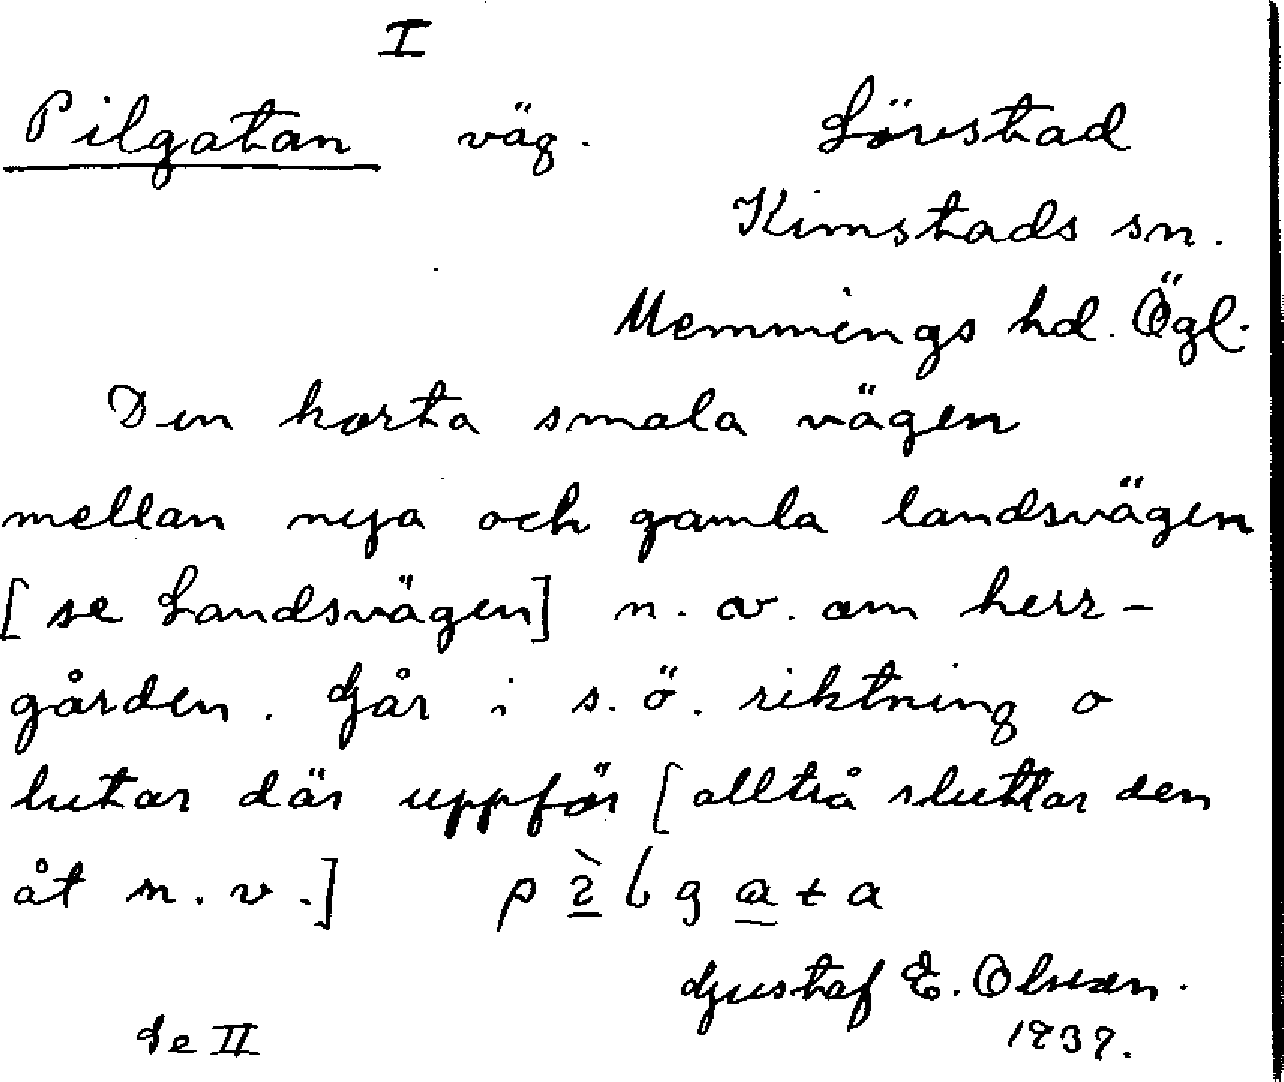 I
Pilgatan väg. Lövstad
Kimstads sn.
Memmings hd. Ögl.
Den korta smala vägen
mellan nya och gamla landsvägen
[se Landsvägen] n. av. om herr-
gården. Går i s.ö. riktning o
lutar där uppför [alltså sluttar den
åt n.v.] p g a t a
Gustaf E. Olsson.
Se II 1937.